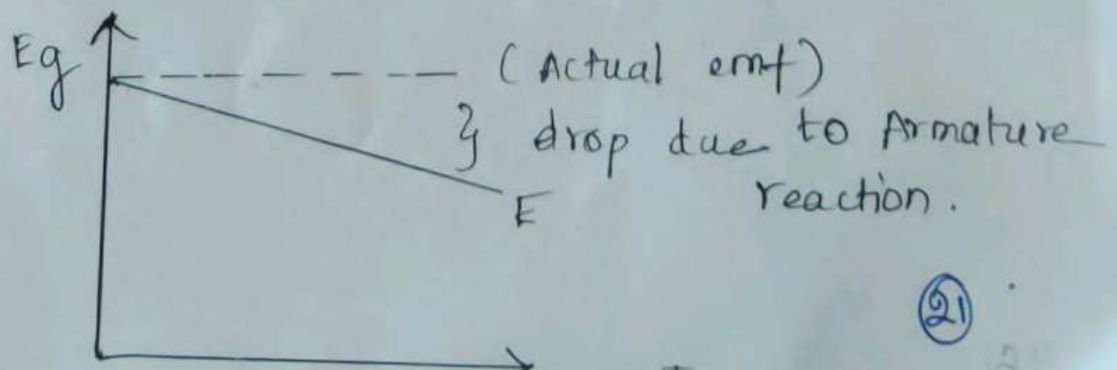 Eg
(Actual emf)
} drop due to Armature
E reaction.
21